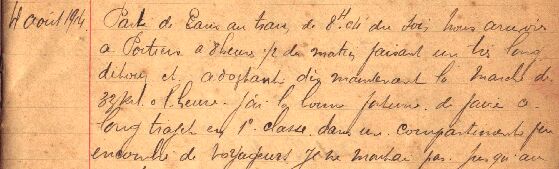 4 août 1914.
Parti de Paris au train de 8H04 du soir nous arrivons
à Poitiers à 8 heures ½ du matin faisant un très long
détour et adoptant dès maintenant la marche de
à l'heure. j'ai la bonne fortune de faire ce
long trajet en 1e classe dans un compartiment peu
encombré de voyageurs. Je ne jusqu'au